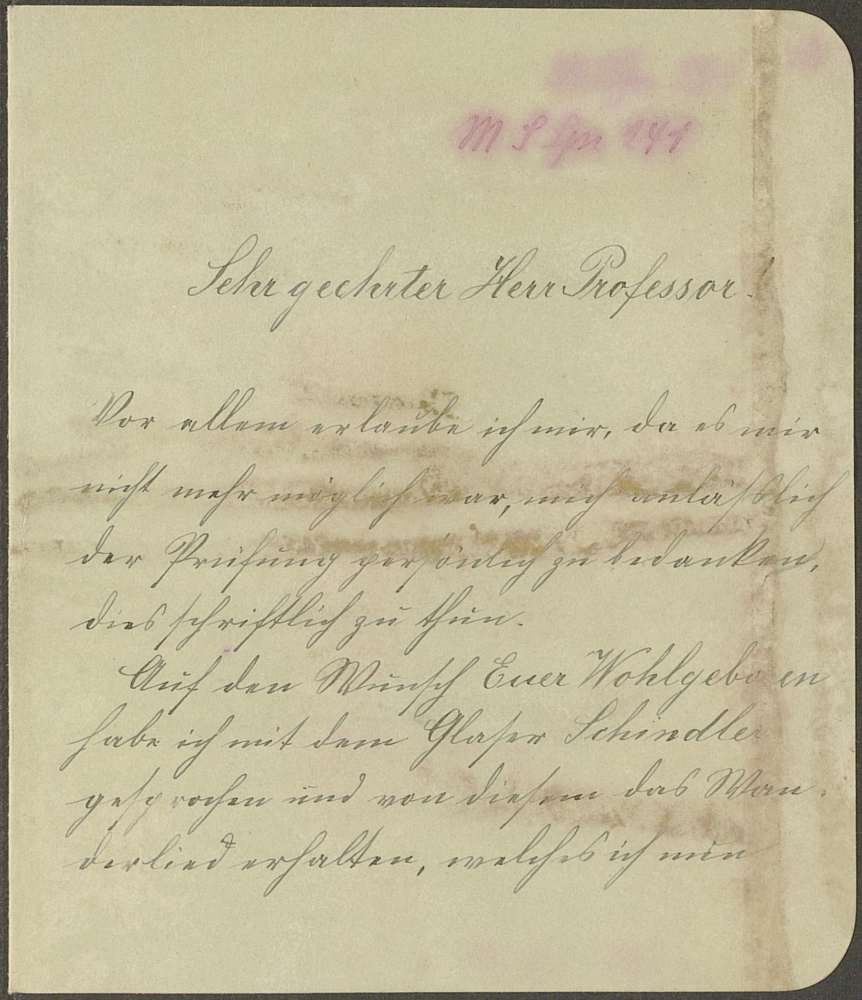 M S Gn 141
Sehr geehrter Herr Professor!
Vor allem erlaube ich mir, da es mir
nicht mehr möglich war, mich anläßlich
der Prüfung persönlich zu bedanken,
dies schriftlich zu thun.
Auf den Wunsch Euer Wohlgeboren
habe ich mit dem Glaser Schindler
gesprochen und von diesem das Wan-
derlied erhalten, welches ich nun